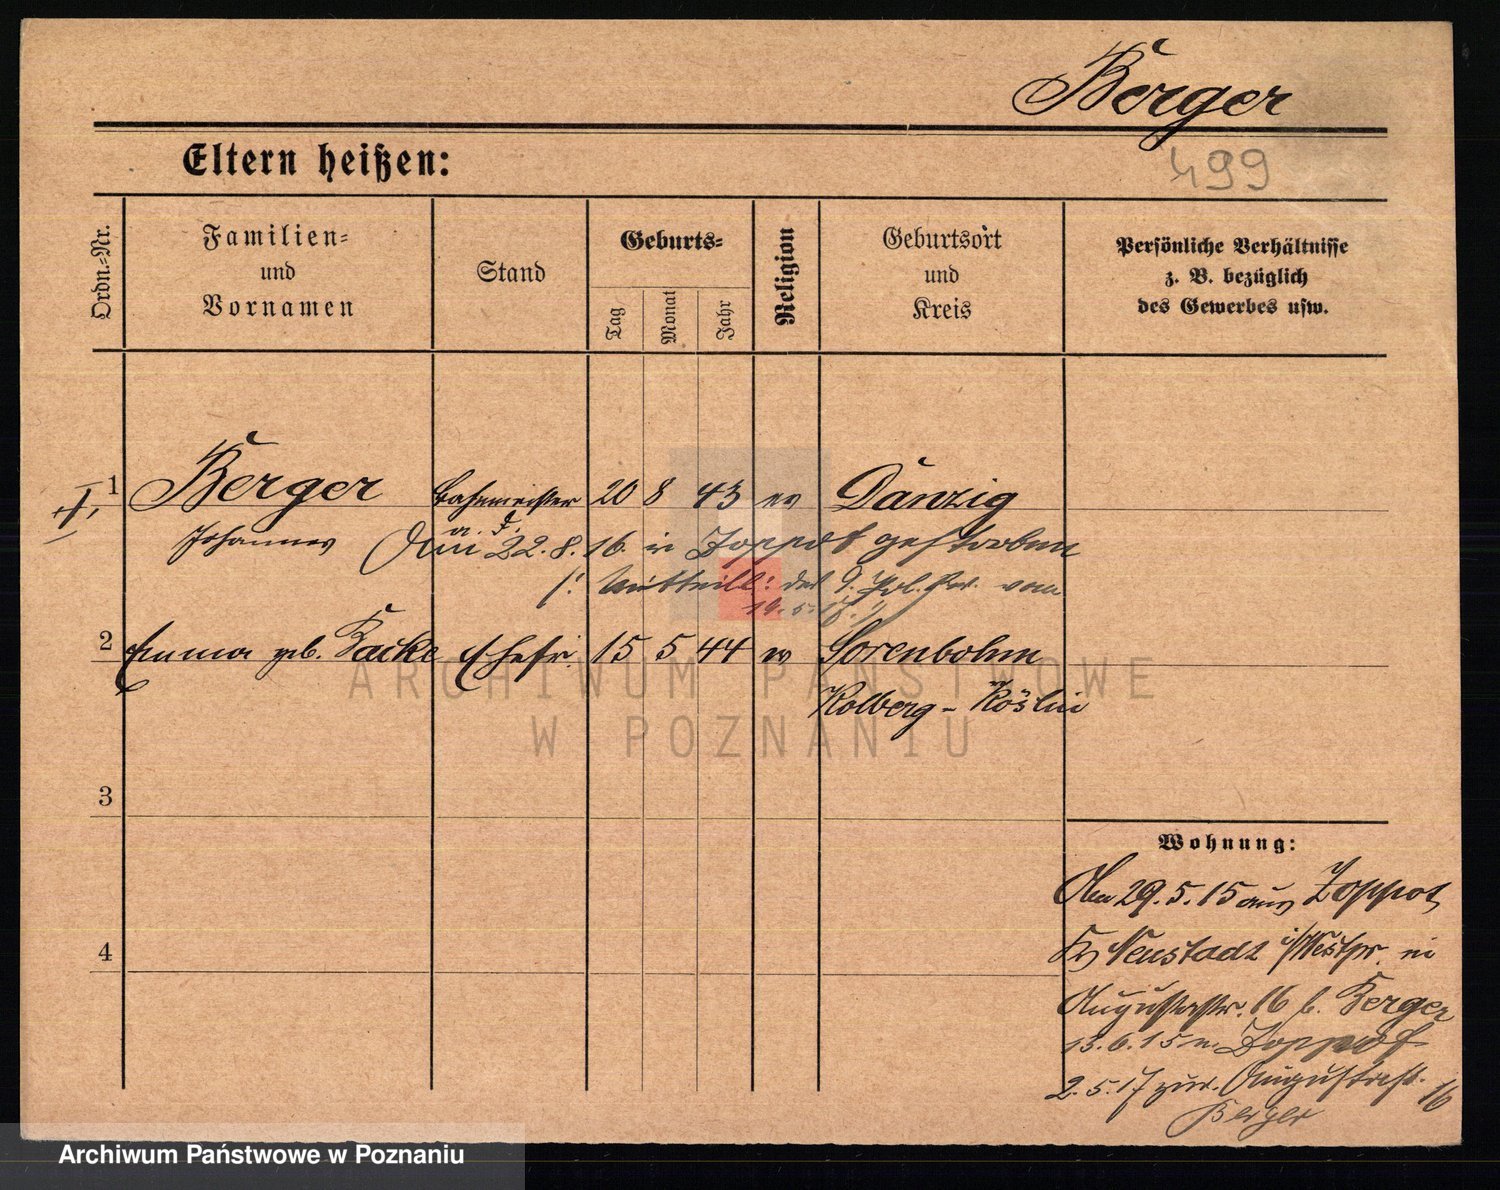 Berger
Eltern heißen:
499
Ordn.-Nr.
Familien-
und
Vornamen
Stand
Geburts-
Tag
Monat
Jahr
Religion
Geburtsort
und
Kreis
Persönliche Verhältnisse
z. B. bezüglich
des Gewerbes usw.
1 Berger Bahnmeister 20 8 43 ev Danzig
a. D.
Johannes Am 22.8.16. in Zoppot gestorben
/: Mitteil: des 9. Pol. Rev. vom
19.5.17. :/
2 Emma geb. Backe Ehefr. 15 5 44 ev Sorenbohm
Kolberg - Köslin
3
4
Wohnung:
Am 29.5.15 aus Zoppot
Kr Neustadt i/Westpr. in
Augustastr. 16 b. Berger
13.6.15 n. Zoppot
2.5.17 zur. Augustastr. 16
Berger
ARCHIWUM PAŃSTWOWE
W POZNANIU
Archiwum Państwowe w Poznaniu